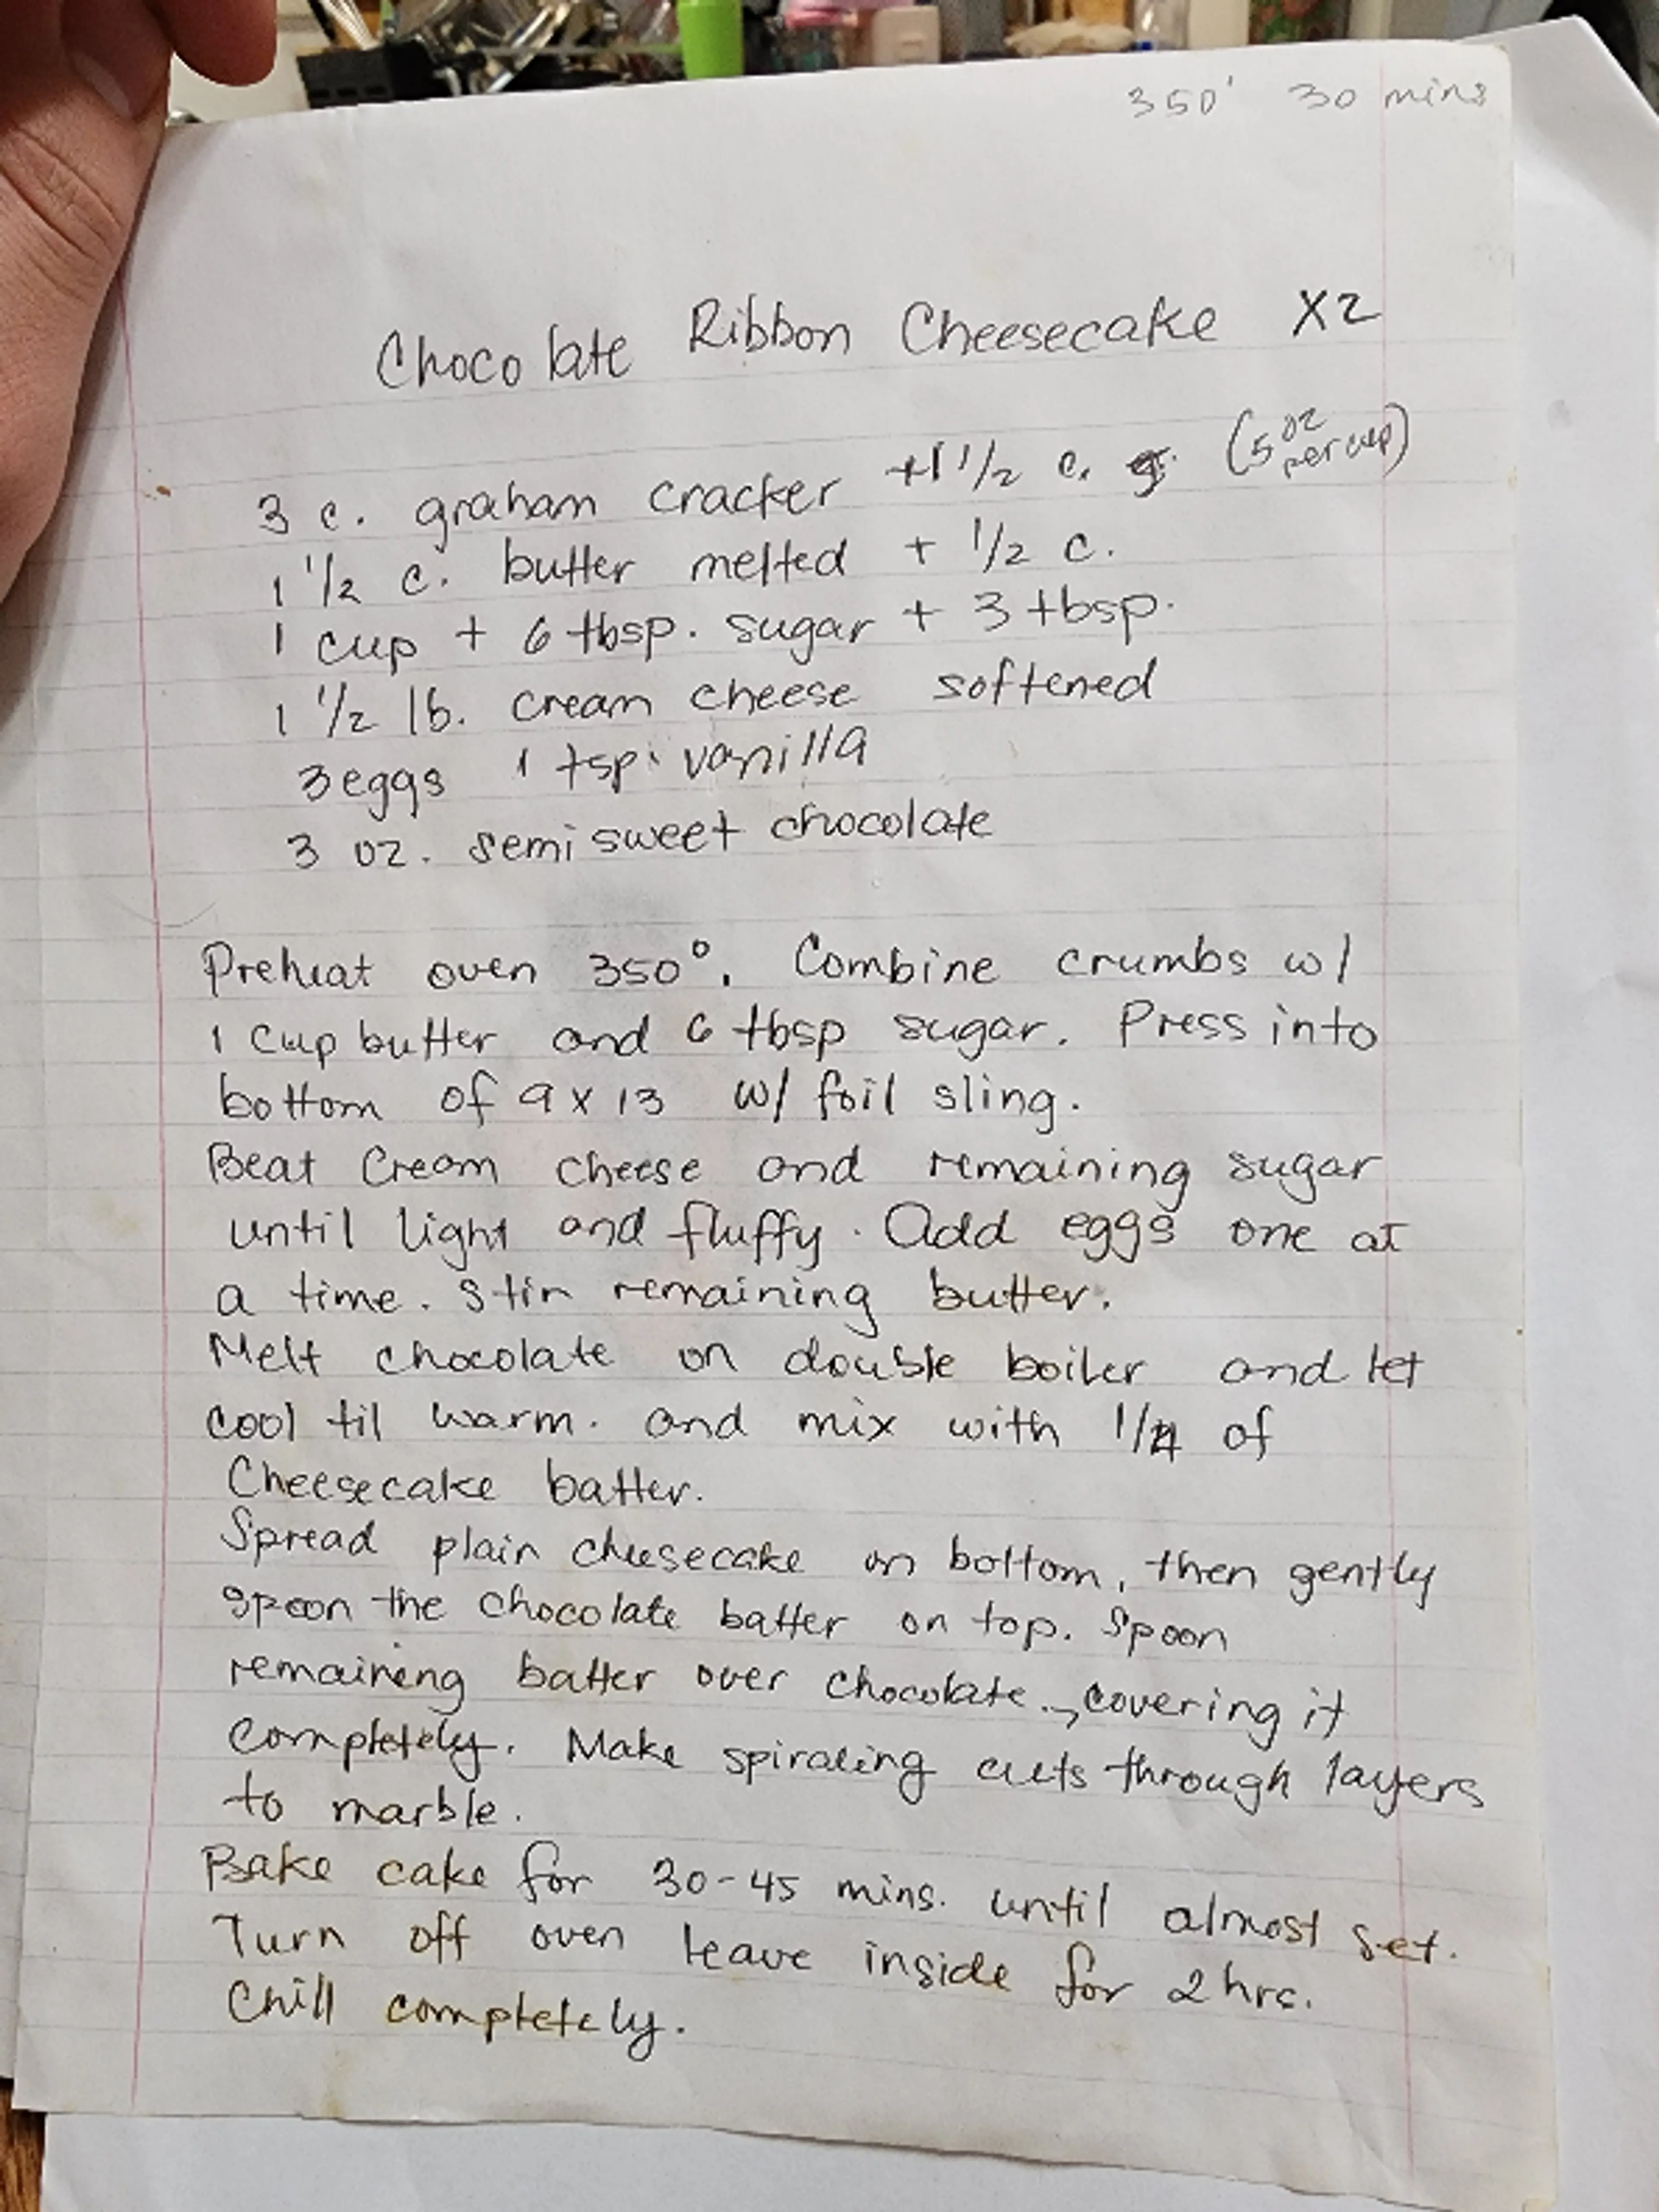 350' 30 mins
Chocolate Ribbon Cheesecake X2
3 c. graham cracker +1 1/2 c. (5 oz per cup)
1 1/2 c. butter melted + 1/2 c.
1 cup + 6 tbsp. sugar + 3 tbsp.
1 1/2 lb. cream cheese softened
3 eggs 1 tsp. vanilla
3 oz. semi sweet chocolate
Preheat oven 350°. Combine crumbs w/
1 cup butter and 6 tbsp sugar. Press into
bottom of 9 x 13 w/ foil sling.
Beat Cream cheese and remaining sugar
until light and fluffy. Add eggs one at
a time. Stir remaining butter.
Melt chocolate on double boiler and let
cool til warm. and mix with 1/4 of
Cheesecake batter.
Spread plain cheesecake on bottom, then gently
spoon the chocolate batter on top. Spoon
remaining batter over chocolate., covering it
completely. Make spiraling cuts through layers
to marble.
Bake cake for 30-45 mins. until almost set.
Turn off oven leave inside for 2 hrs.
Chill completely.